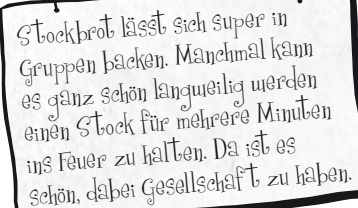 Stockbrot lässt sich super in
Gruppen backen. Manchmal kann
es ganz schön langweilig werden
einen Stock für mehrere Minuten
ins Feuer zu halten. Da ist es
schön, dabei Gesellschaft zu haben.